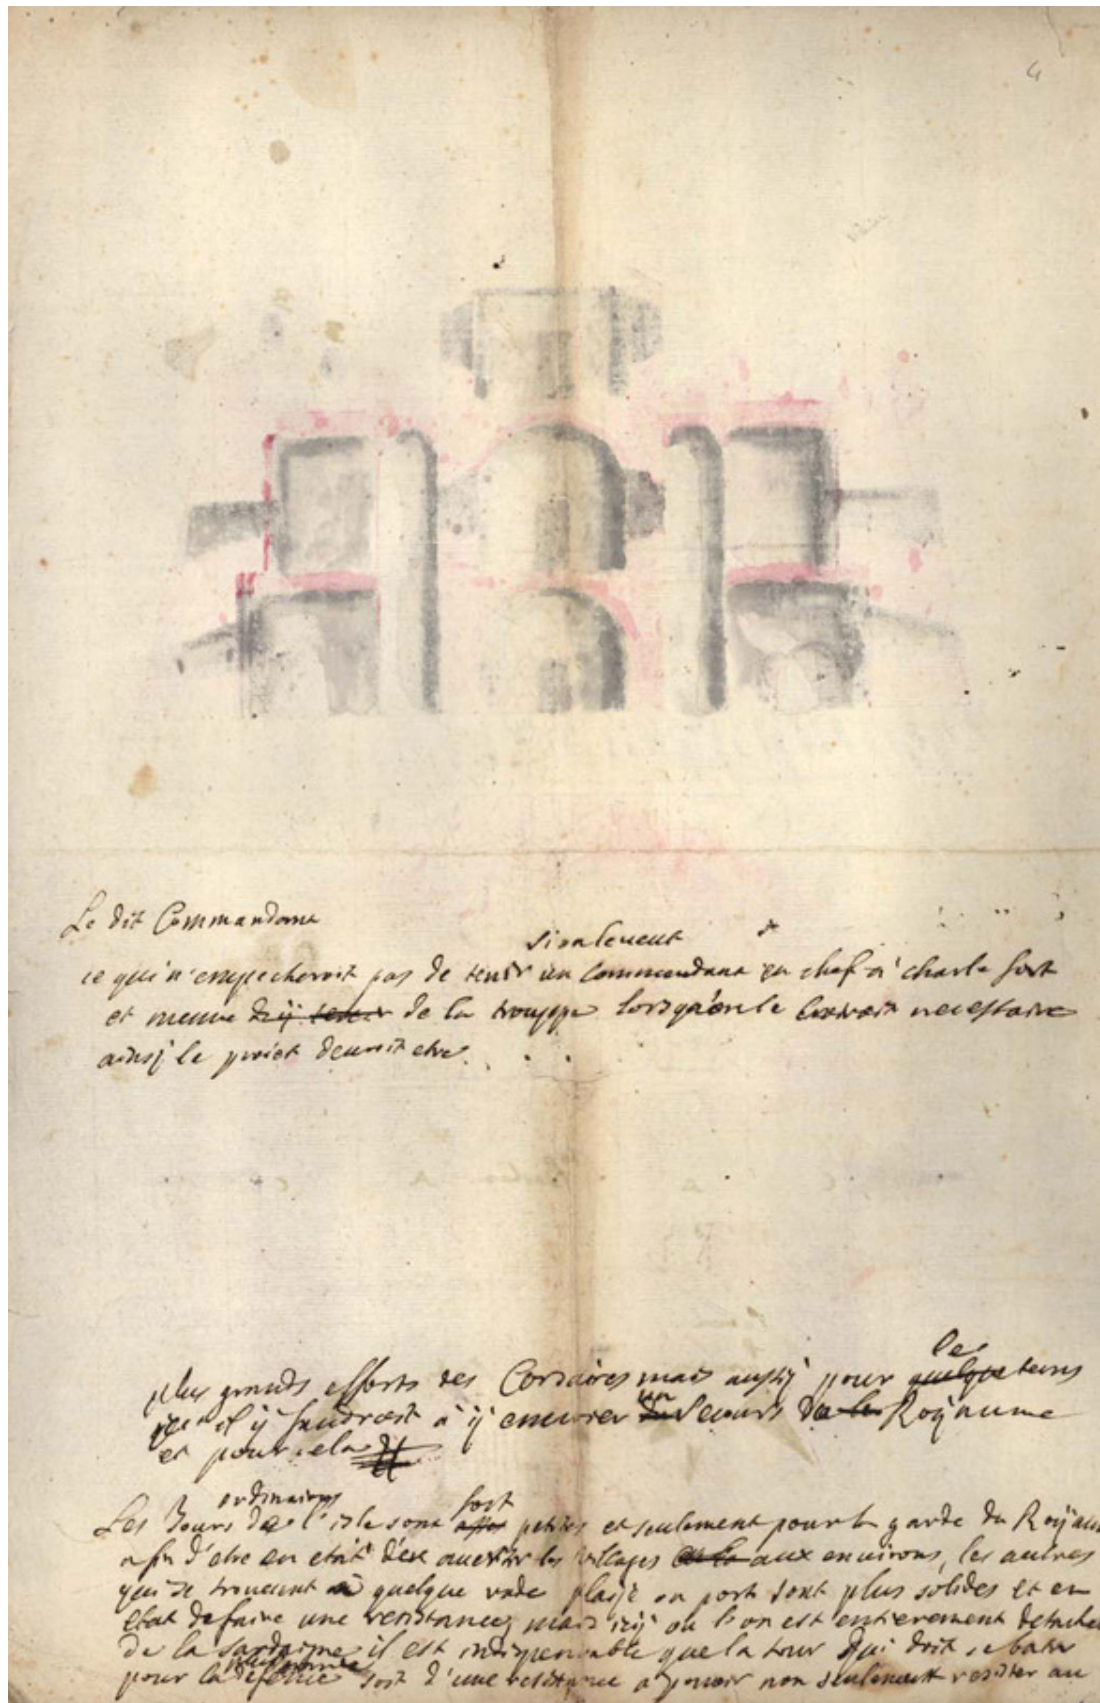 4
Le dit Commandant
seulement
ce qui n'empecheroit pas de tenir un Commandant en chef à charle fort
et meme d'ÿ tenir de la trouppe lorsqu'on le necessaire
ainsÿ le proiet deuroit etre
les
plus grands efforts des Corsaires mais aussÿ pour quelque tems
qu'il ÿ faudroit à ÿ enuoier un secours du Roÿaume
et pour cela
ordinaires fort
Les Tours de l'isle sont petites et seulement pour la garde du Roÿaume
afin d'etre en etat d'en auertir les villages aux enuirons, les autres
qui se trouuent à quelque rade plage ou port sont plus solides et en
etat de faire une resistance mais icÿ ou l'on est entierement detaché
de la Sardaigne il est indispensable que la tour qui doit se batir
pour la defense soit d'une resistance a pouuoir non seulement resister au